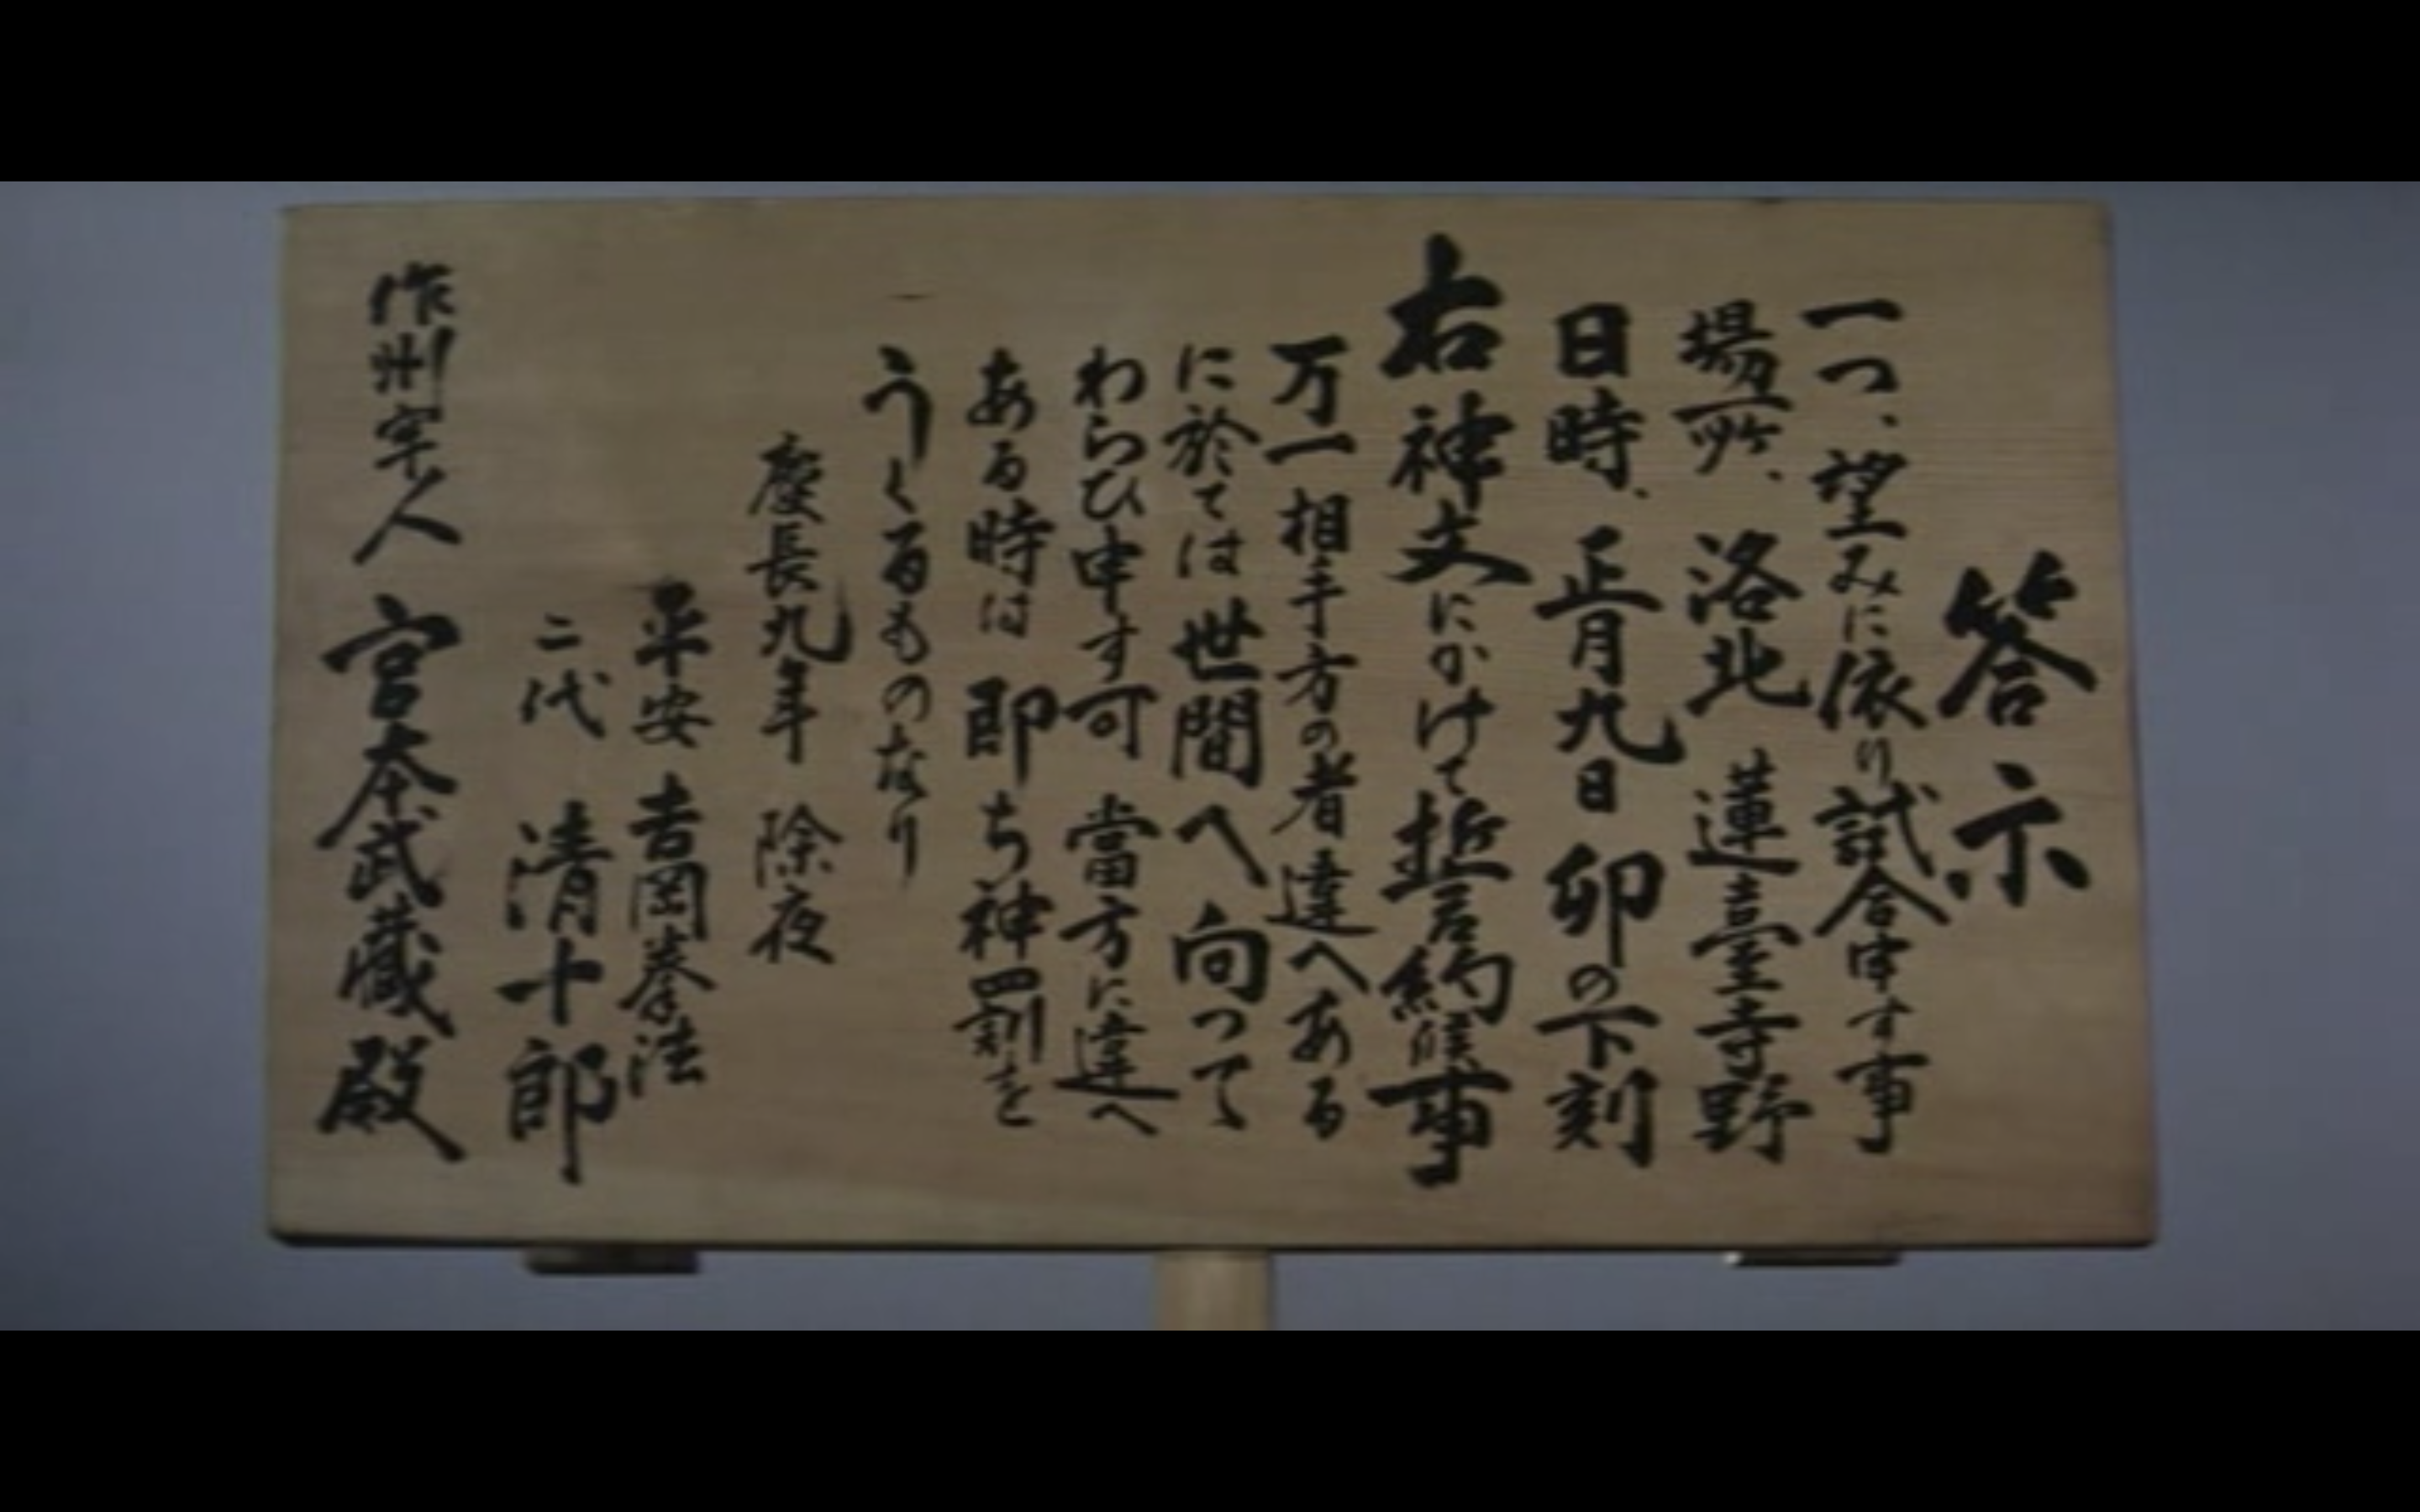 答示
一つ、望みに依り試合申す事
場所、洛北 蓮臺寺野
日時、正月九日 卯の下刻
右神文にかけて誓約候事
万一相手方の者違へある
に於ては世間へ向つて
わらひ申す可 當方に違へ
ある時は即ち神罰を
うくるものなり
慶長九年 除夜
平安 吉岡拳法
二代 清十郎
作州牢人 宮本武蔵殿